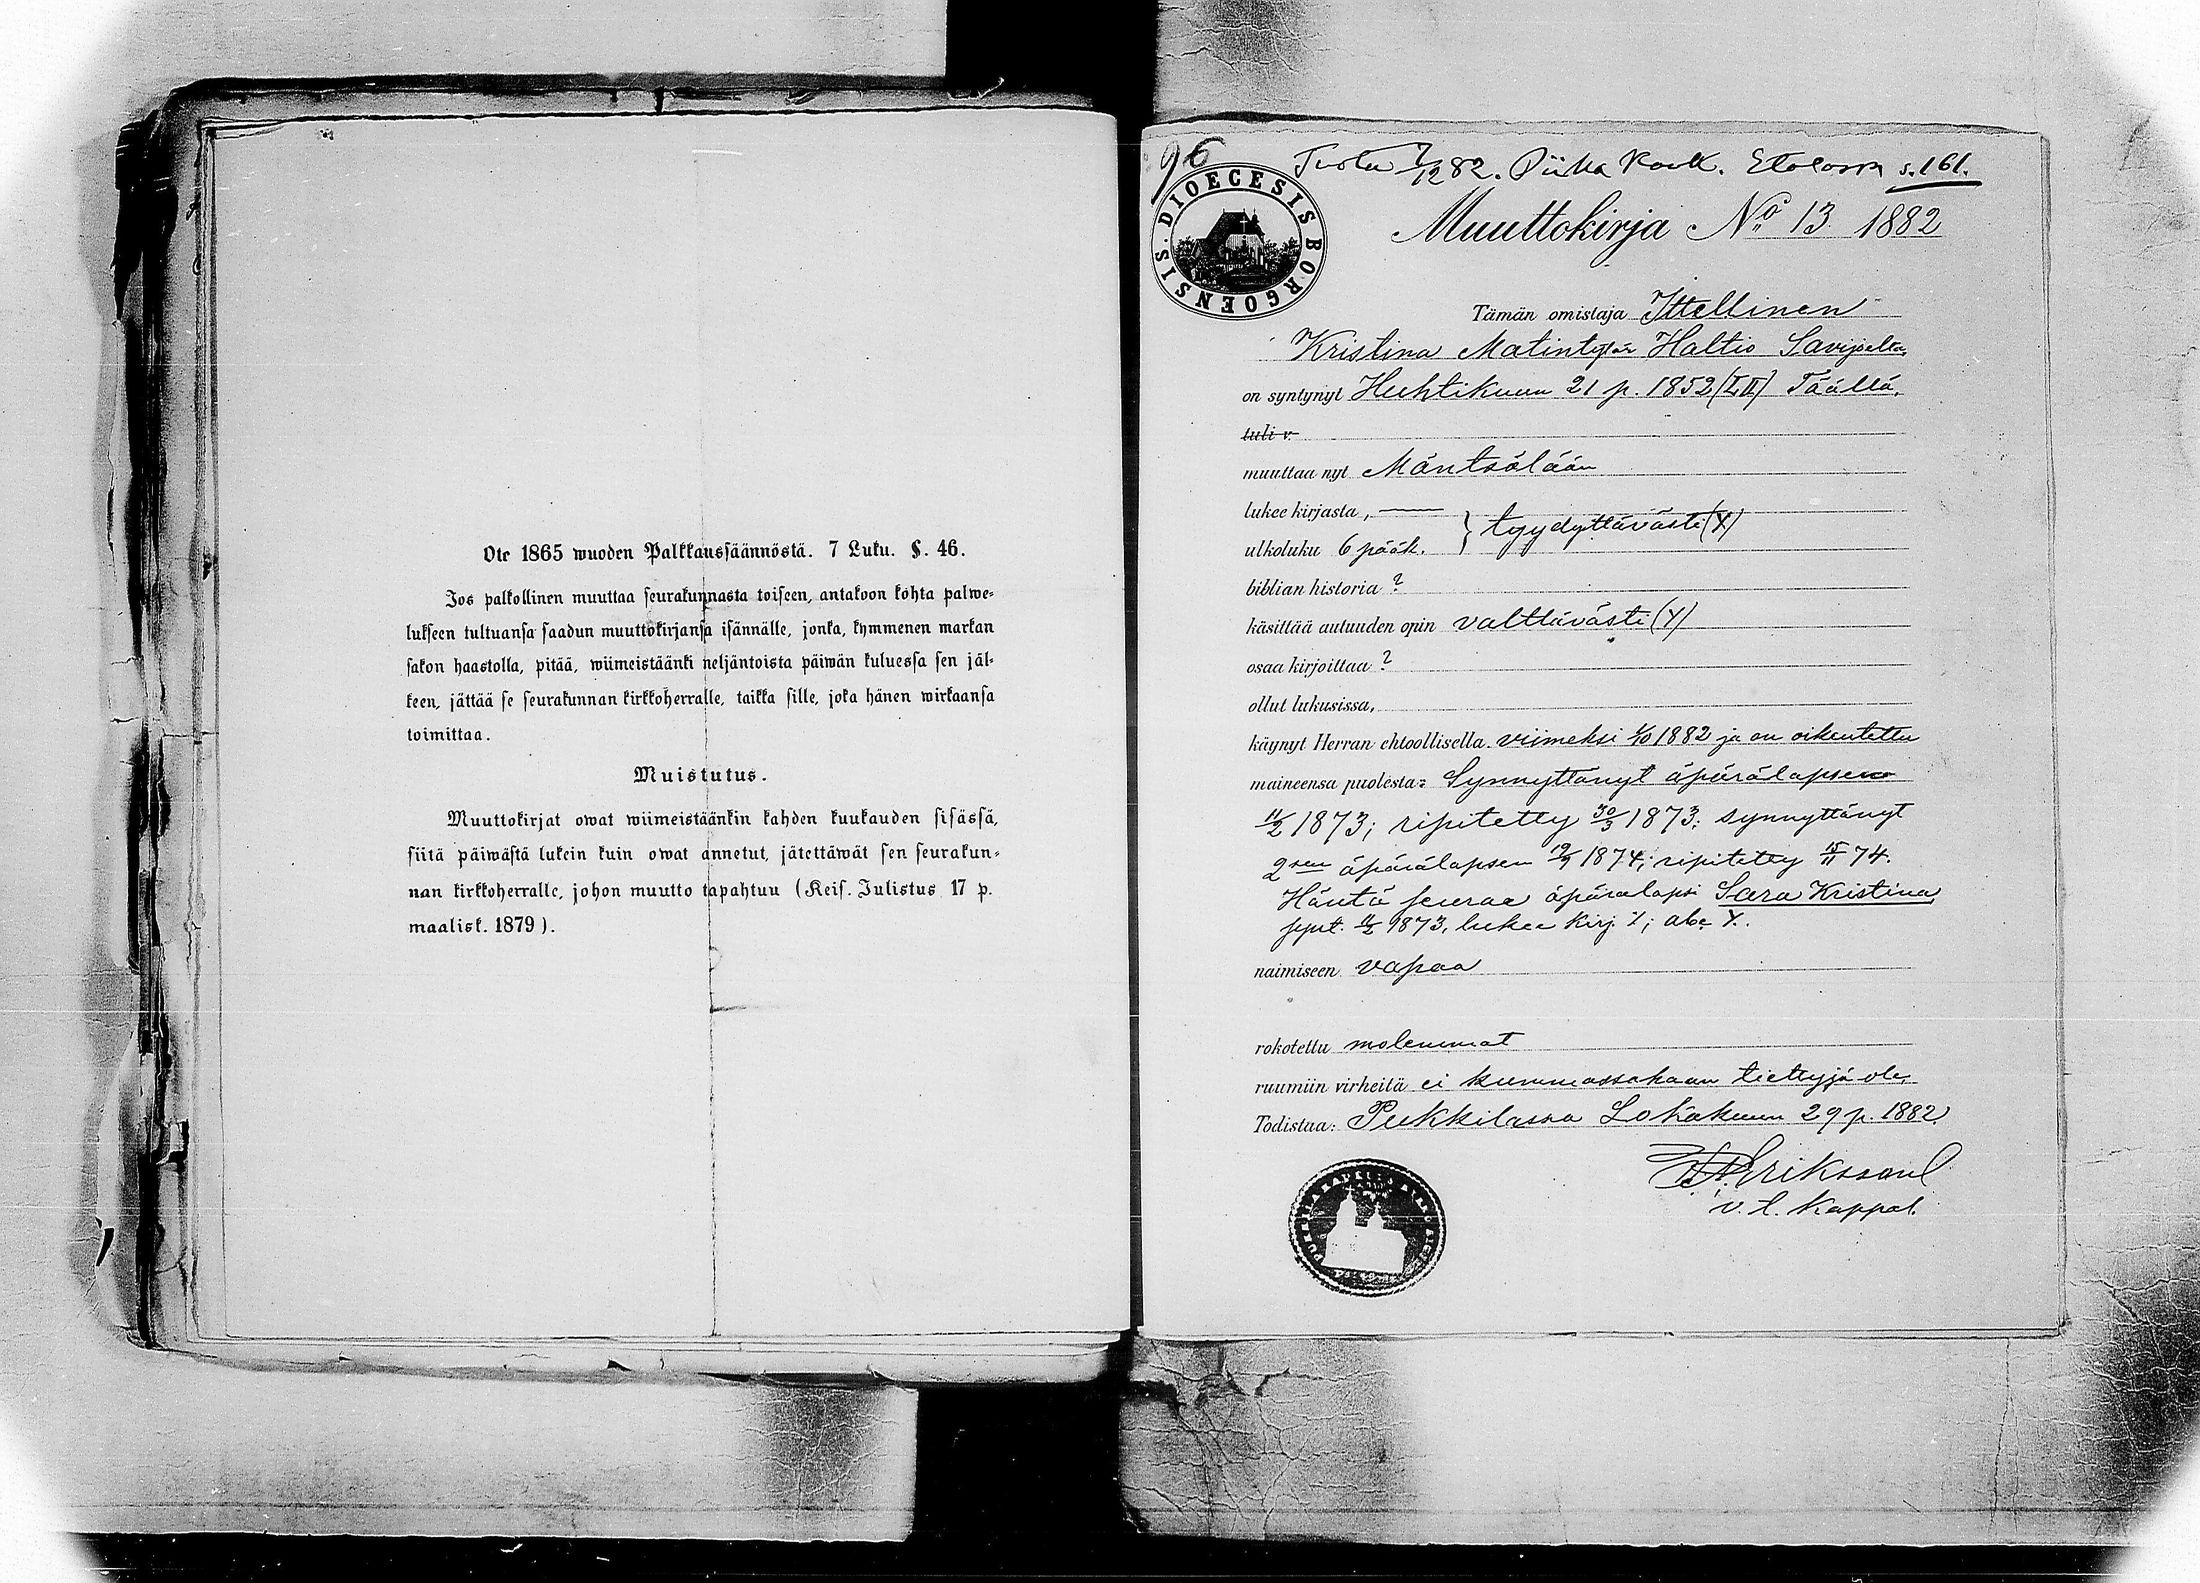 Ote 1865 wuoden Palkkaussäännöstä. 7 Luku. §. 46.
Jos palkollinen muuttaa seurakunnasta toiseen, antakoon kohta palwe-
lukseen tultuansa saadun muuttokirjansa isännälle, jonka, kymmenen markan
sakon haastolla, pitää, wiimeistäänki neljäntoista päiwän kuluessa sen jäl-
keen, jättää se seurakunnan kirkkoherralle, taikka sille, joka hänen wirkaansa
toimittaa.
Muistutus.
Muuttokirjat owat wiimeistäänkin kahden kuukauden sisässä,
siitä päiwästä lukein kuin owat annetut, jätettäwät sen seurakun-
nan kirkkoherralle, johon muutto tapahtuu (Keis. Julistus 17 p.
maalisk. 1879).
96
82. Piika s. 161.
DIOECESIS BORGOENSIS.
Muuttokirja No 13 1882
Tämän omistaja Ittellinen
Kristina Matintytär Haltio Savijoelta,
on syntynyt Huhtikuun 21 p. 1852 (LII) Täällä,
tuli v.
muuttaa nyt Mäntsälään
lukee kirjasta,
ulkoluku 6 pääk. } tyydyttävästi (X)
biblian historia ?
käsittää autuuden opin valttävästi (Y)
osaa kirjoittaa ?
ollut lukusissa,
käynyt Herran ehtoollisella viimeksi 1/10 1882 ja on oikeutettu
maineensa puolesta: Synnyttänyt äpärälapsen
11/2 1873; ripitetty 30/3 1873; synnyttänyt
2sen äpärälapsen 19/9 1874; ripitetty 15/11 74.
Häntä seuraa äpäralapsi Sara Kristina,
synt. 11/2 1873, lukee kirj. ; abc Y.
naimiseen vapaa
rokotettu molemmat
ruumiin virheitä ei kummassakaan tiettyjä ole,
Todistaa: Pukkilassa Lokakuun 29 p. 1882
Eriksson
v. t. Kappal.